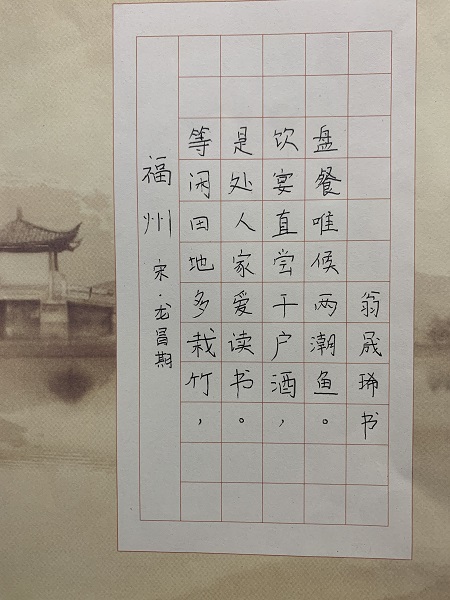 福州 宋·龙昌期
等闲田地多栽竹，
是处人家爱读书。
饮宴直尝千户酒，
盘餐唯候两潮鱼。
翁晟琋书